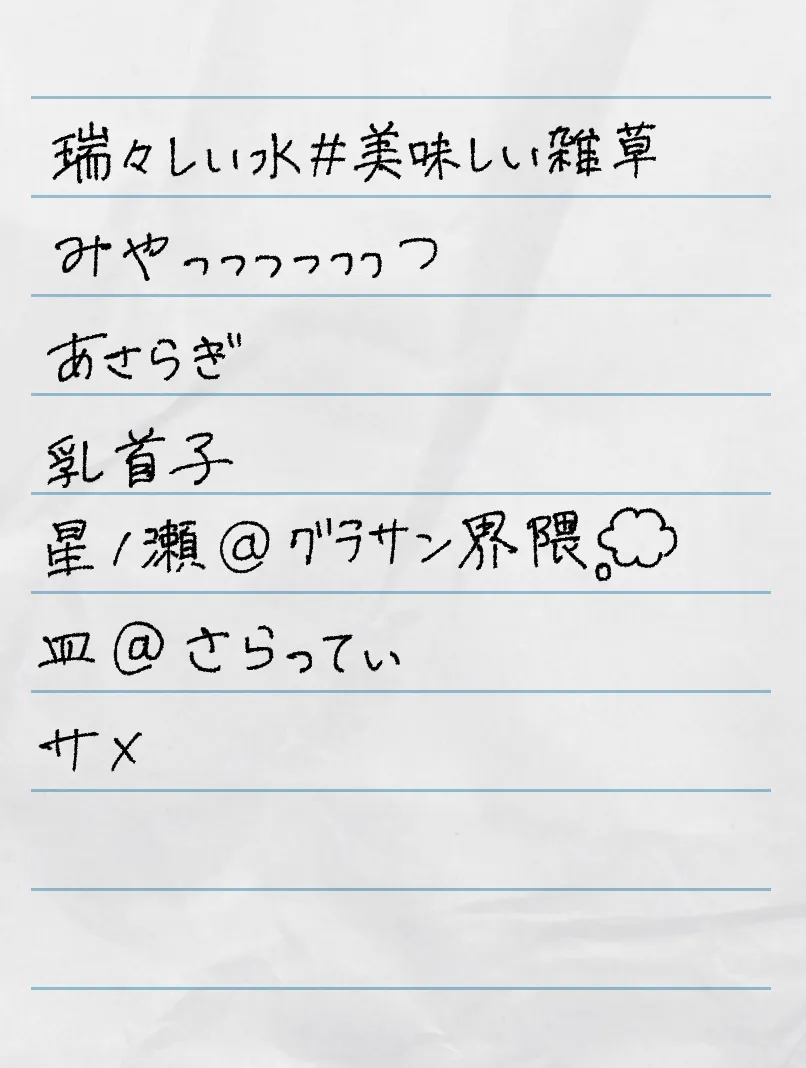 瑞々しい水#美味しい雑草
みやっっっっっっつ
あさらぎ
乳首子
星ノ瀬@グラサン界隈💭
皿@さらってぃ
サメ